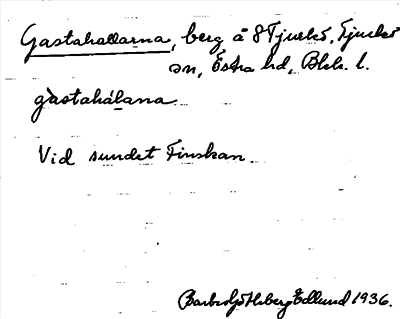 Gastahallarna, berg å 8 Tjurkö, Tjurkö
sn, Östra hd, Blek. l.
gàstahálana
Vid sundet Finskan.
Edlund 1936.